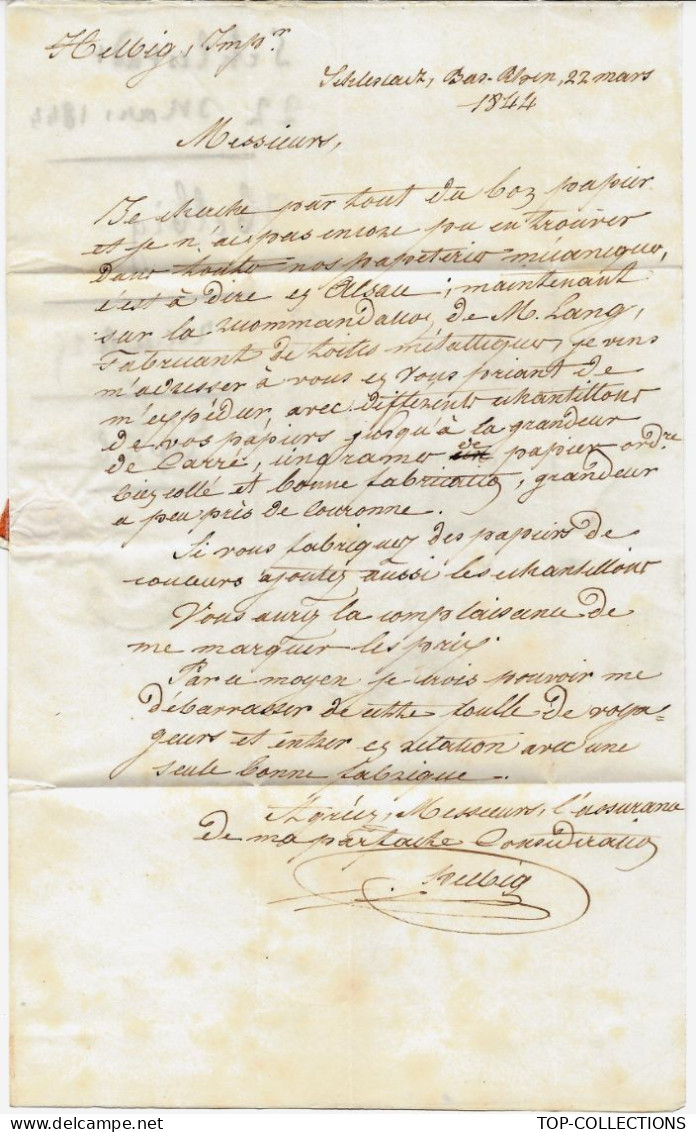 Helbig, Impr.
Schlestadt, Bas-Rhin, 22 mars
1844
Messieurs,
Je cherche par tout du bon papier
et je n'ai pas encore pu en trouver
dans toutes nos papeteries mécaniques,
c'est à dire en Alsace; maintenant
sur la recommandation de M. Lang,
Fabricant de toiles métalliques, je viens
m'adresser à vous en vous priant de
m'expédier, avec différents echantillons
de vos papiers jusqu'à la grandeur
de Carré, une rame de papier ordre.
bien collé et bonne fabrication, grandeur
a peu près de Couronne.
Si vous fabriquez des papiers de
couleurs ajoutez aussi les echantillons
Vous aurez la complaisance de
me marquer les prix.
Par ce moyen je crois pouvoir me
débarrasser de cette foulle de voya=
geurs et entrer en relation avec une
seule bonne fabrique.
Agréez, Messieurs, l'assurance
de ma parfaite Considération
Helbig
TOP-COLLECTIONS